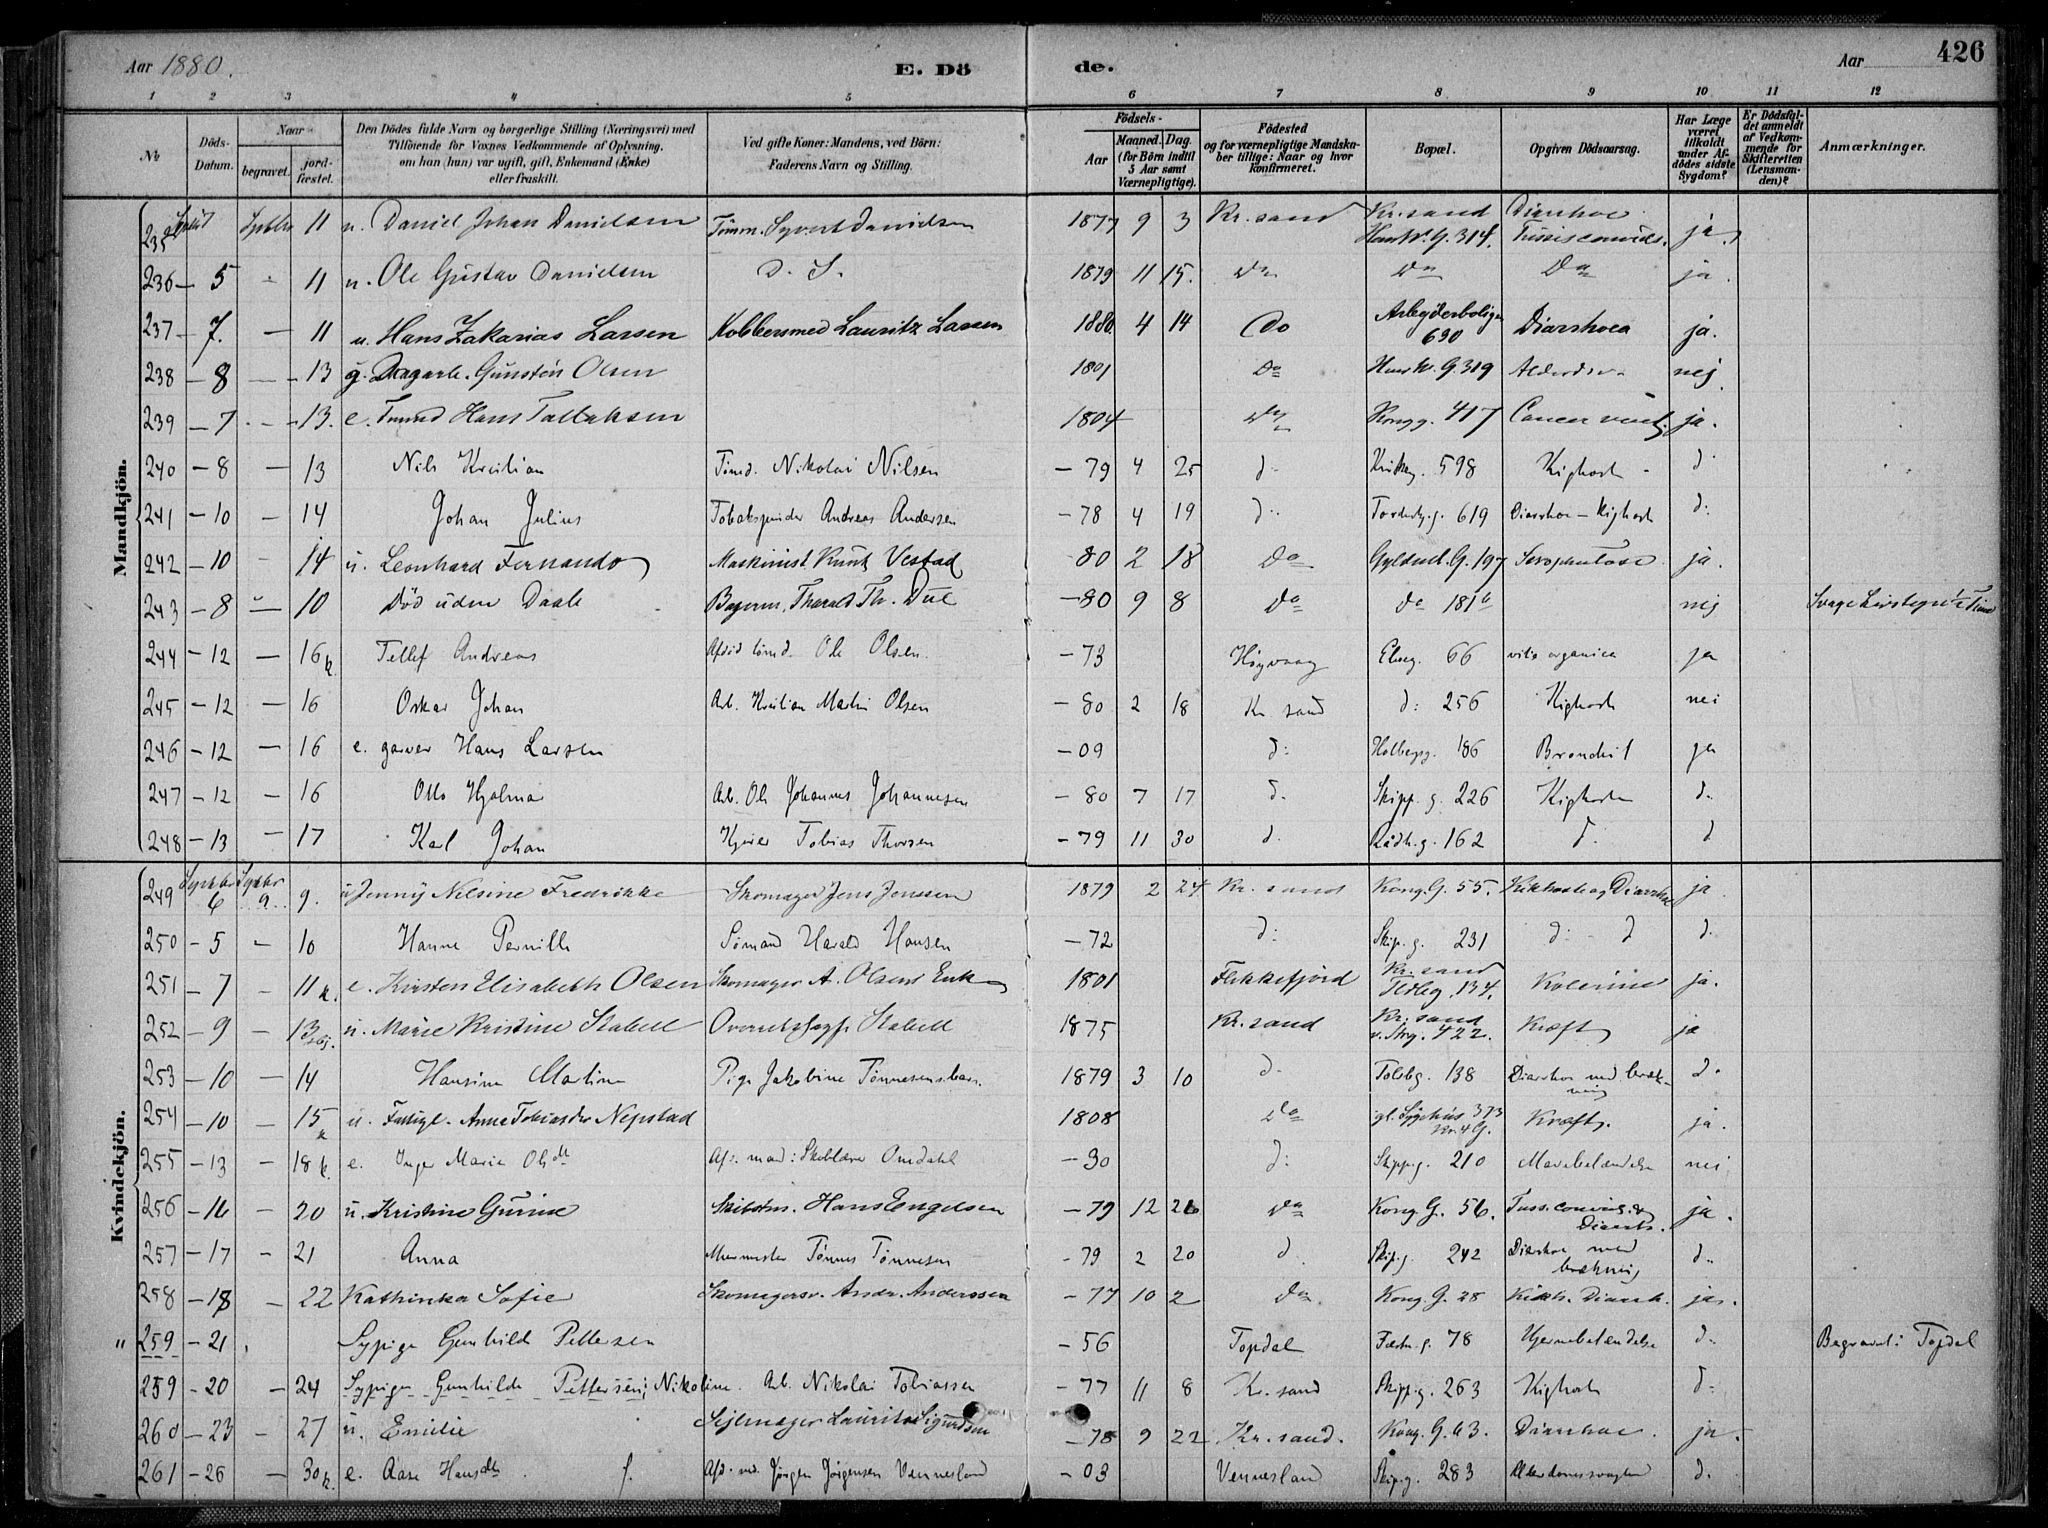 Aar 1880. E. Dö de. Aar 426
1 2 3 4 5 6 7 8 9 10 11 12
No. Döds-Datum. Naar begravet. jordfæstet. Den Dödes fulde Navn og borgerlige Stilling (Næringsvei) med Tilföiende for Voxnes Vedkommende af Oplysning, om han (hun) var ugift, gift, Enkemand (Enke) eller fraskilt. Ved gifte Koner: Mandens, ved Börn: Faderens Navn og Stilling. Födsels- Aar Maaned. Dag. (for Börn indtil 5 Aar samt Værnepligtige). Födested og for værnepligtige Mandskaber tillige: Naar og hvor konfirmeret. Bopæl. Opgiven Dödsaarsag. Har Læge været tilkaldt under Afdödes sidste Sygdom? Er Dödsfaldet anmeldt af Vedkommende for Skifteretten (Lensmanden)? Anmærkninger.
Mandkjön.
235 Septbr 11 u. Daniel Johan Danielsen Tømm. Syvert Danielsen 1877 9 3 Kr.sand Kr.sand G. 314. Diarrhoe Tussis convuls. ja
236 – 5 – 11 u. Ole Gustav Danielsen D. S. 1879 11 15. Do Do Do ja.
237 – 7. – 11 u. Hans Zakarias Larsen Kobbersmed Lauritz Larsen 1880 4 14 Do Arbeyderboligen 690 Diarrhoea ja.
238 – 8 – 13 g. Dragarb. Gunstén Olsen 1801 Do G. 319 nej
239 – 7 – 13. e. Tømmd Hans Tallaksen 1804 Do Kongg. 417 Cancer ventr. ja.
240 – 8 – 13 Nils Kristian Tømd. Nikolai Nilsen – 79 4 25 d: 598 Kighoste d:
241 – 10 – 14 Johan Julius Tobakspinder Andreas Andersen – 78 4 19 d: Tordensk.g. 619 Diarrhoe – Kighoste d:
242 – 10 – 14 u. Leonhard Fernando Maskinist Knut Vestad – 80 2 18 Do Gyldenl. G. 197 Scrophulose ja.
243 – 8 – 10 Død uden Daab Bagerm. Tharald Th. Due – 80 9 8 Do do 181b nej Svage Livstegn i ½ Time
244 – 12 – 16 k Tellef Andreas Afdød tømd. Ole Olsen – 73 Høyvaag Elveg. 66 vitie organica ja
245 – 12 – 16 Oskar Johan Arb. Kristian Martin Olsen – 80 2 18 Kr sand d: 256 Kighoste nei
246 – 12 – 16 e. garver Hans Larsen – 09 d: Holbergsg. 186 Bronchit ja
247 – 12 – 16 Otto Hjalmar Arb. Ole Johannes Johannesen – 80 7 17 d: Skipp.g. 226 Kighoste d:
248 – 13 – 17 Karl Johan Kjører Tobias Thorsen – 79 11 30 d: Rådh.g. 162 d: d
Kvindekjön.
249 Septbr 6 Septbr 9 9. u Jenny Nilsine Fredrikke Skomager Jens Jenssen 1879 2 24 Kr. sand Kong.G. 55. Kikhoste og Diarrhoe ja
250 – 5 – 10 Hanne Pernille Sømand Harald Hansen – 72 d: Skip.g. 231 d: d d:
251 – 7 – 11 k. e. Kirsten Elisabeth Olsen Skomager A. Olsens Enke 1801 Flekkefjord Kr. sand Tolbg. 134. Kolerine ja.
252 – 9 – 13 u. Marie Kristine Stabell Overretssagf. Stabell 1875 Kr. sand Kr. sand v. Strg. 422. Kræft ja
253 – 10 – 14 Hansine Martine Pige Jakobine Tønnesens barn. 1879 3 10 d: Tolbg. 138 Diarrhoe med brækning d:
254 – 10 – 15 k u. Fattigl. Anne Tobiasdtr Nepstad 1808 Do gl. Sygehus 373 Kr. 4 G. Kræft. ja.
255 – 13 – 18 k. e. Inger Marie Olsdtr Afd. mand: Skolelærer Omdahl – 30 d: Skippg. 210 Mavebetændelse nei
256 – 16 – 20 u. Kristine Gurine Skibstm. Hans Engelsen – 79 12 26 Do Kong G. 56. Tuss. convuls. & Diarrh. ja.
257 – 17 – 21 Anna Murmester Tønnes Tønnesen – 79 2 20 d. Skip.g. 242 Diarrhoe med brækning d:
258 – 18 – 22 Kathinka Sofie Skomagersv. Andr. Anderssen – 77 10 2 Do Kong G. 28 Kikh. Diarrh. ja.
" 259 – 21 . Sypige Gunhild Pettersen – 56 Topdal Fæstn.g. 78 Hjernebetændelse d: Begravet i Topdal
259 – 20 – 24 Sypige Gunhilde Pettersen; Nikoline. Arb. Nikolai Tobiassen – 77 11 8 Kr. sand Skippg. 263 Kighoste d:
260 – 23 – 27 u. Emilie Sejlmager Lauritz Sigurdsen – 78 9 22 Kr. sand. Kong. G. 63. Diarrhoe. ja.
261 – 26 – 30 k. e. Aase Hansdtr f. Afd. md. Jørgen Jørgensen Vennesland – 03 Vennesland Skip.g. 283 Alderdomssvaghed d.